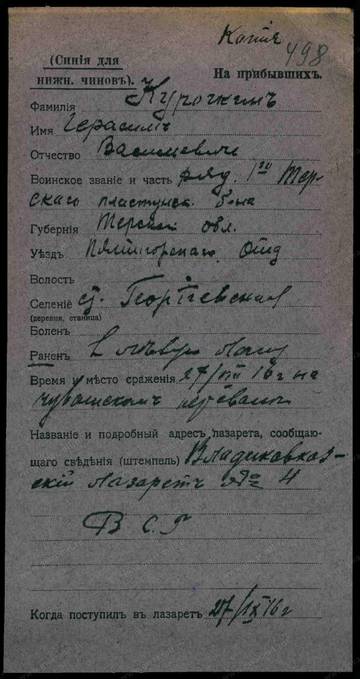 Копія
498
(Синія для
нижн. чиновъ).
На прибывшихъ.
Фамилія Курочкинъ
Имя Герасимъ
Отчество Васильевичъ
Воинское званіе и часть ряд. 1го Тер-
скаго пластунск. б-на
Губернія Терской обл.
Уѣздъ Пятигорскаго Отд
Волость
Селеніе ст. Георгіевская
(деревня, станица)
Боленъ
Раненъ въ лѣвую
Время и мѣсто сраженія 27/VII 16г на
перевалѣ
Названіе и подробный адресъ лазарета, сообщаю-
щаго свѣдѣнія (штемпель) Владикавказ-
скій Лазаретъ № 4
В С Г
Когда поступилъ въ лазаретъ 27/IX 16г